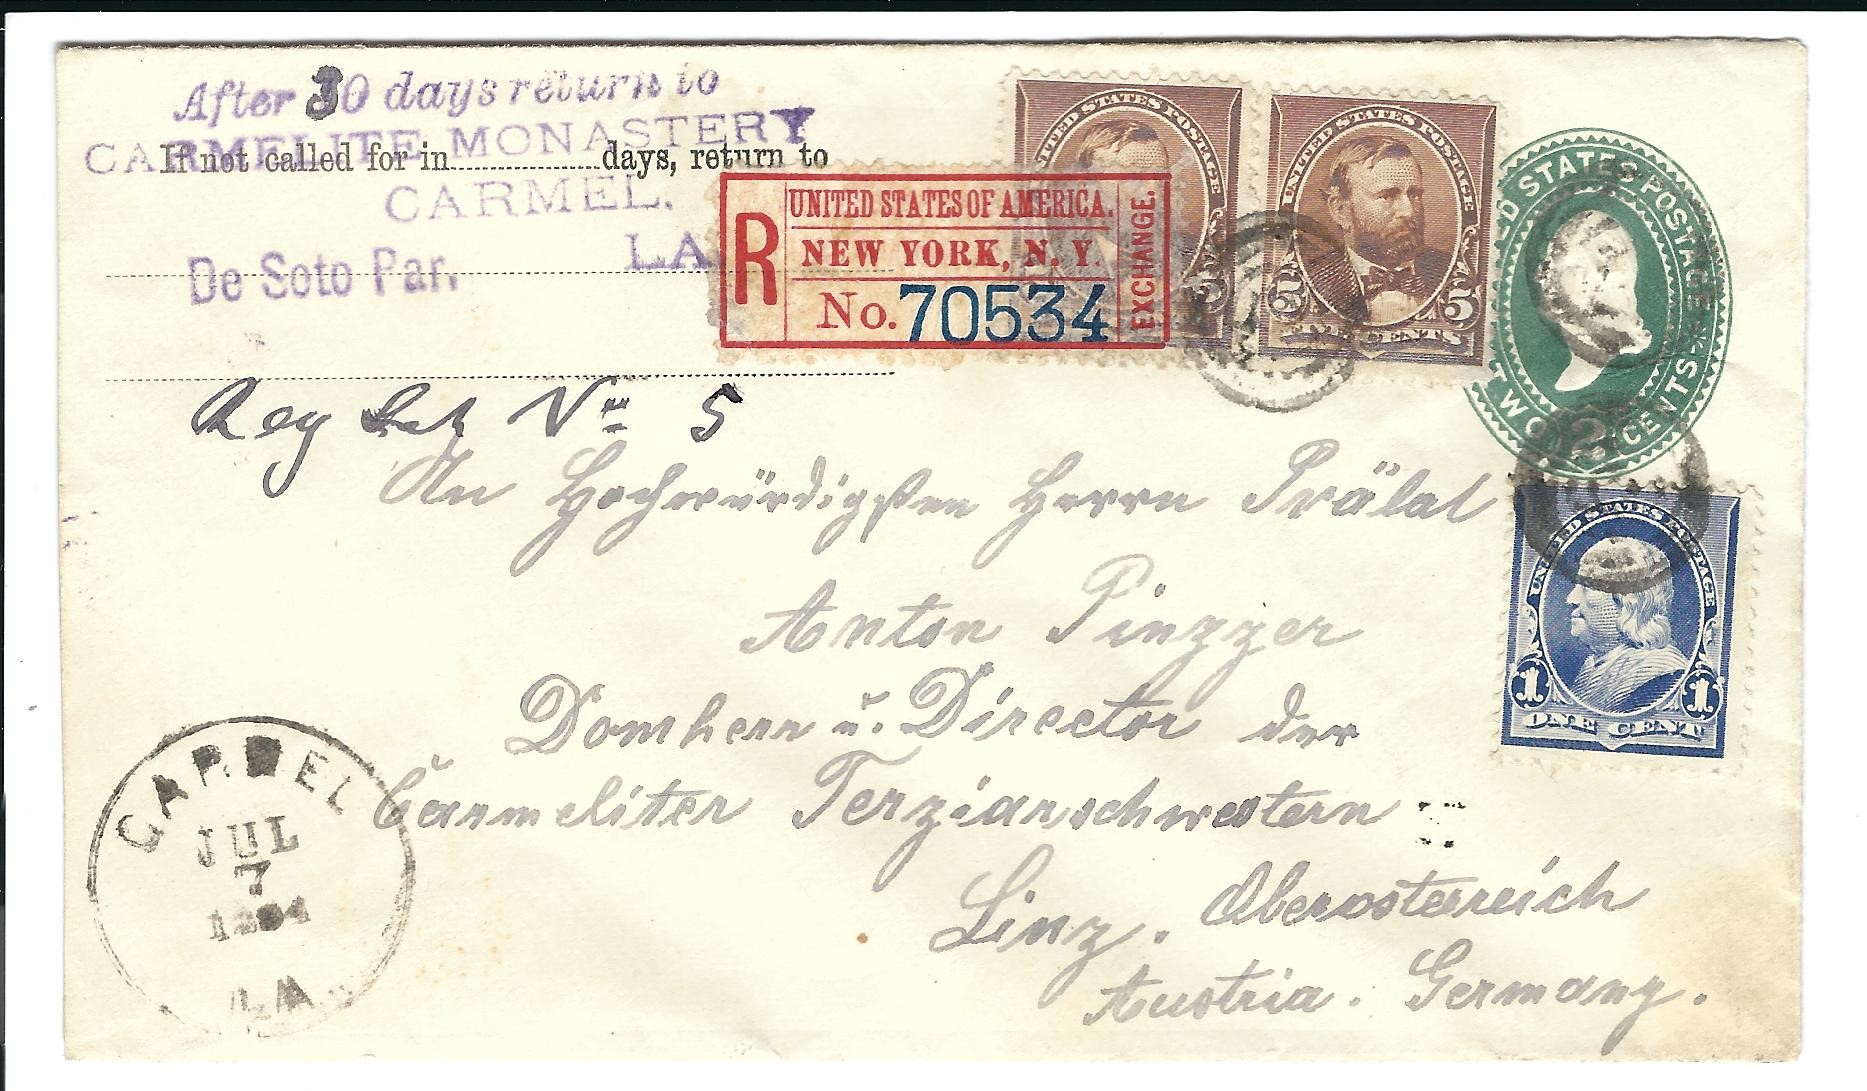 After 30 days return to
CARMELITE MONASTERY
If not called for in days, return to
CARMEL.
LA
De Soto Par.
R
UNITED STATES OF AMERICA.
NEW YORK, N. Y.
No. 70534
EXCHANGE.
UNITED STATES POSTAGE
5
UNITED STATES POSTAGE
5 5
FIVE CENTS
UNITED STATES POSTAGE
TWO 2 CENTS
Reg No 5
An Hochwürdigsten Herrn Prälat
Anton Pinzger
Domherr u. Director der
Carmeliter Terziarschwestern
Linz. Oberosterreich
Austria. Germany.
UNITED STATES POSTAGE
1 1
ONE CENT
CARMEL
JUL
7
1894
LA